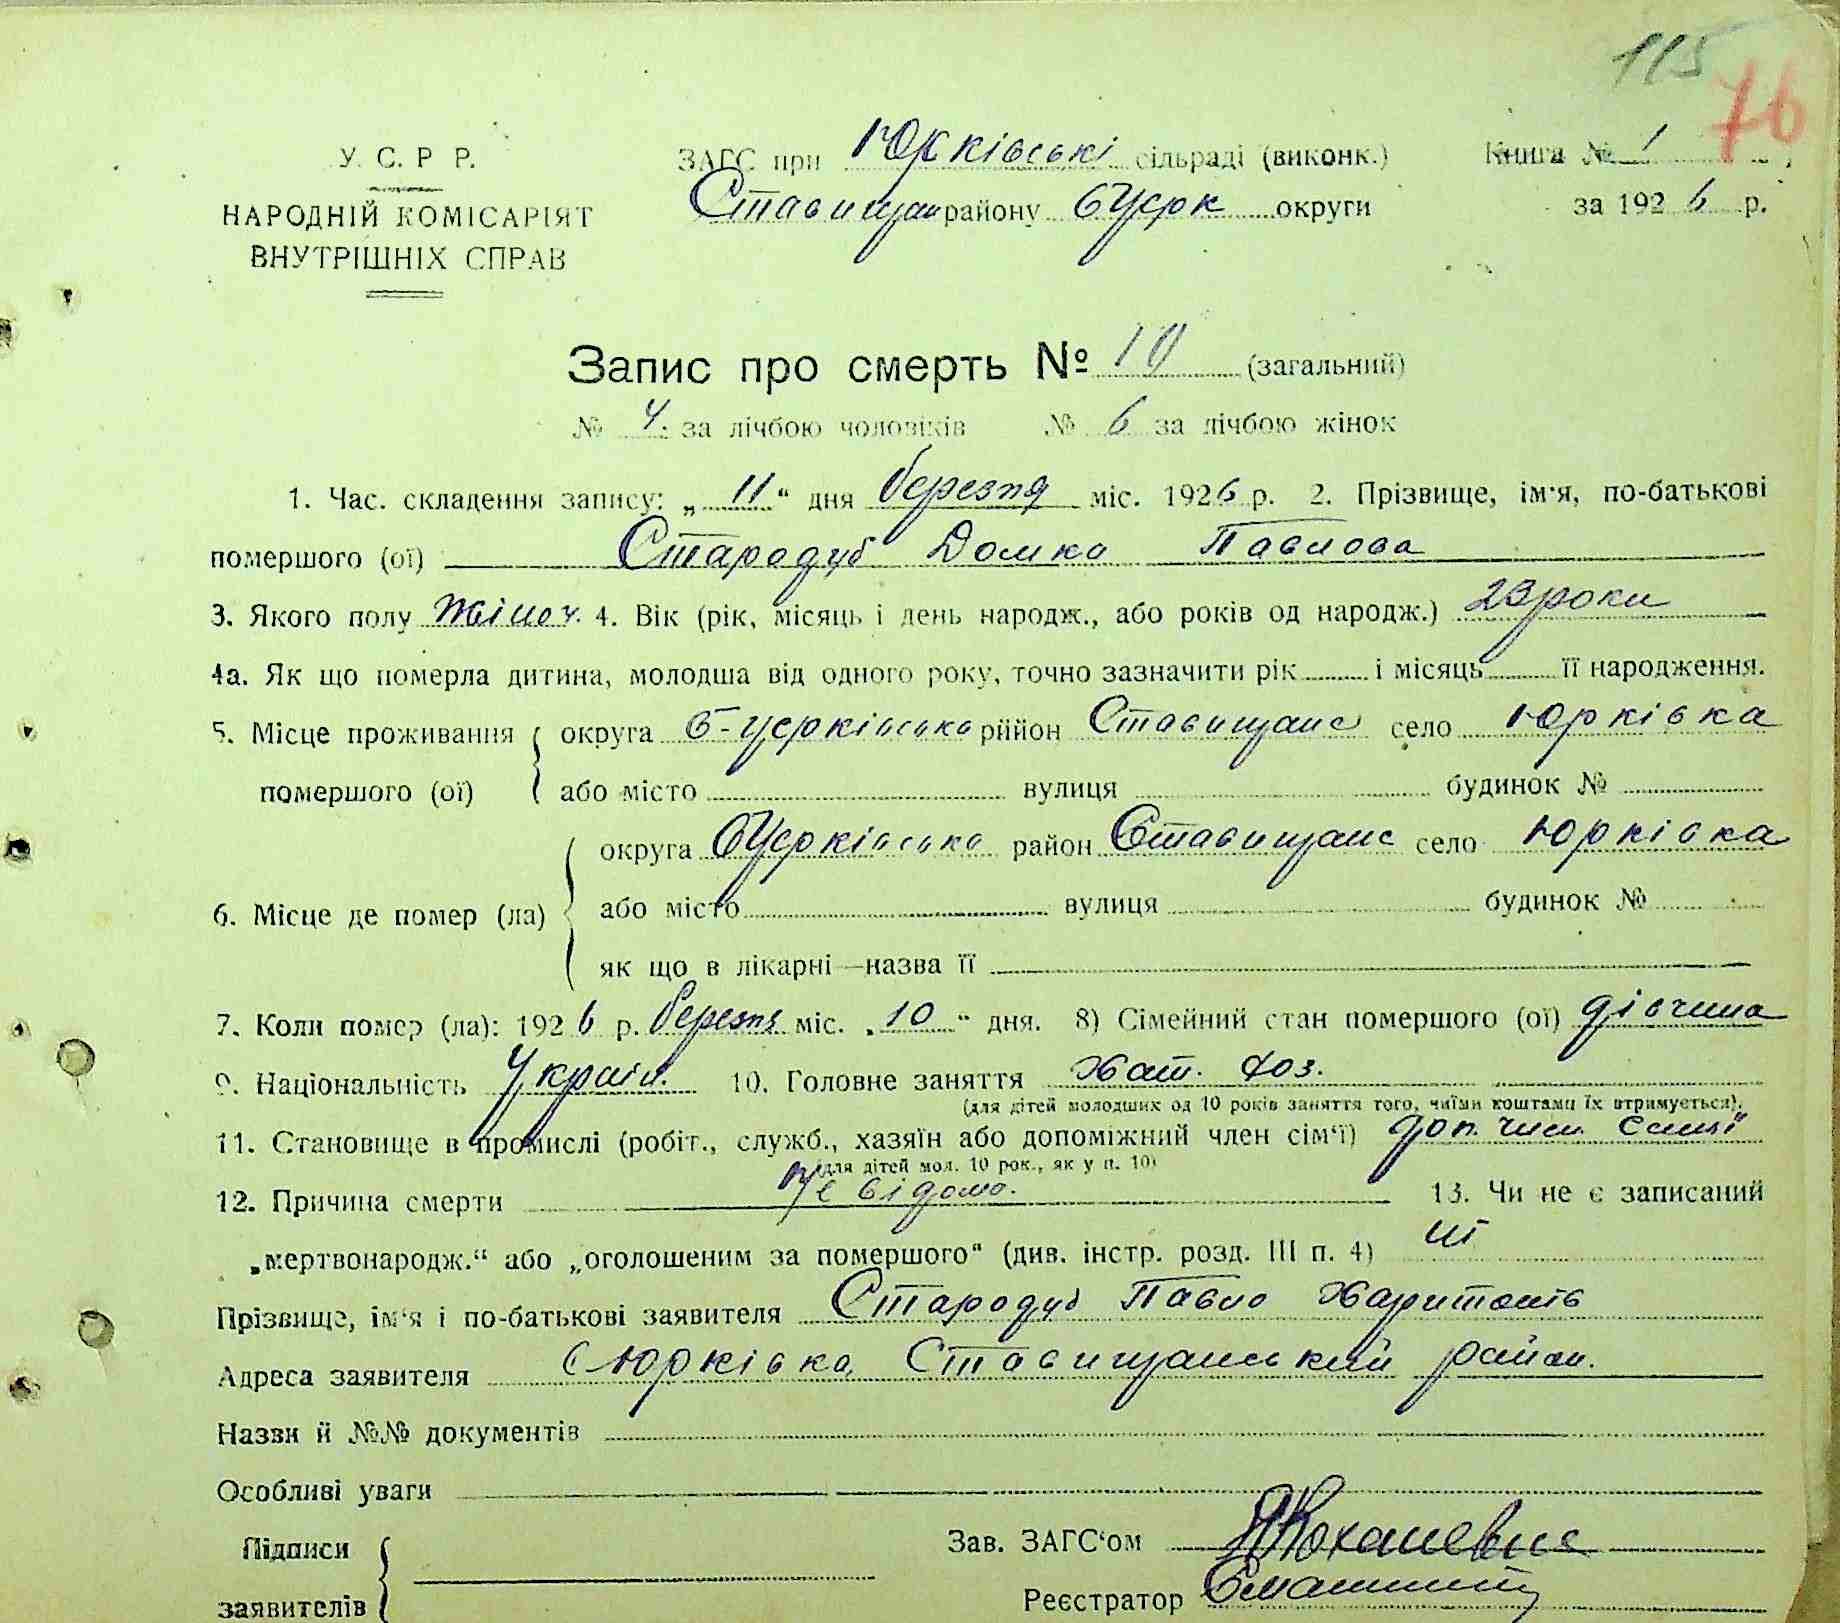 115
76
У. С. Р Р.
НАРОДНІЙ КОМІСАРІЯТ
ВНУТРІШНІХ СПРАВ
ЗАГС при Юрківські сільраді (виконк.)
Ставищан району БЦерк округи
Книга № 1
за 1926 р.
Запис про смерть № 10 (загальний)
№ 4. за лічбою чоловіків № 6 за лічбою жінок
1. Час. складення запису: „11“ дня березня міс. 1926 р. 2. Прізвище, ім'я, по-батькові
помершого (ої) Стародуб Домка Павлова
3. Якого полу жіноч. 4. Вік (рік, місяць і день народж., або років од народж.) 23 роки
4а. Як що померла дитина, молодша від одного року, точно зазначити рік і місяць її народження.
5. Місце проживання помершого (ої) округа Б-Церківська рййон Ставищанс село Юрківка
або місто вулиця будинок №
6. Місце де помер (ла) округа БЦерківська район Ставищанс село Юрківка
або місто вулиця будинок №
як що в лікарні—назва її
7. Коли помер (ла): 1926 р. березня міс. „10“ дня. 8) Сімейний стан помершого (ої) дівчина
9. Національність Україн. 10. Головне заняття Хат. Хоз.
(для дітей молодших од 10 років заняття того, чиїми коштами їх втримується).
11. Становище в промислі (робіт., служб., хазяїн або допоміжний член сім'ї) доп. член Семьї
(для дітей мол. 10 рок., як у п. 10)
12. Причина смерти Не відомо. 13. Чи не є записаний
„мертвонародж.“ або „оголошеним за помершого“ (див. інстр. розд. III п. 4) ні
Прізвище, ім'я і по-батькові заявителя Стародуб Павло Харитонів
Адреса заявителя с Юрківка, Ставищанський район.
Назви й №№ документів
Особливі уваги
Підписи
заявителів
Зав. ЗАГС'ом
Реєстратор